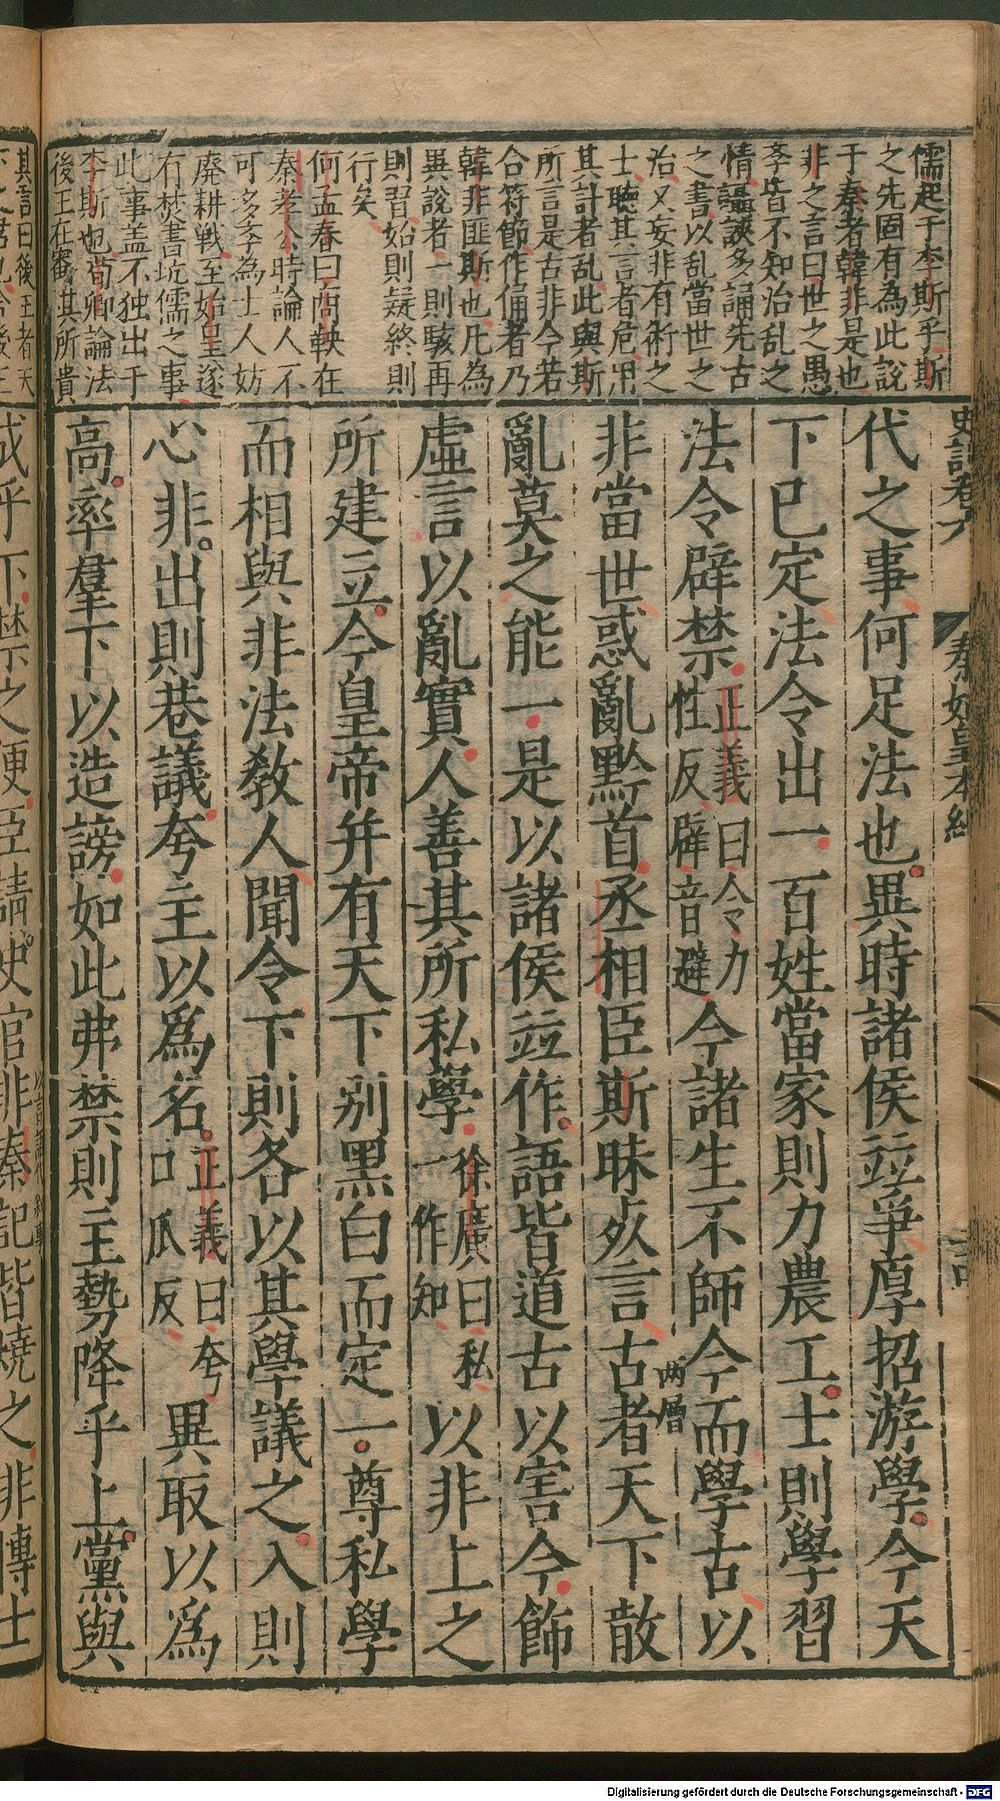 儒起于李斯乎斯
之先固有為此說
于秦者韓非是也
非之言曰世之愚
孝皆不知治乱之
情讘䛟多誦先古
之書以乱當世之
治又妄非有術之
士聽其言者危用
其計者乱此與斯
所言是古非今若
合符節作俑者乃
韓非匪斯也凡為
異說者一則駭再
則習始則疑終則
行矣
何孟春曰商鞅在
秦孝公時論人不
可多孝為士人妨
廃耕戦至始皇遂
有焚書坑儒之事
此事盖不独出于
李斯也荀卿論法
後王在審其所貴
史記卷六 秦始皇本紀
代之事何足法也異時諸侯並爭厚招游學今天
下巳定法令出一百姓當家則力農工士則學習
法令辟禁正義曰令力性反辟音避今諸生不師今而學古以
两層
非當世惑亂黔首丞相臣斯昧死言古者天下散
亂莫之能一是以諸侯並作語皆道古以害今飾
虛言以亂實人善其所私學徐廣曰私一作知以非上之
所建立今皇帝并有天下別黑白而定一尊私學
而相與非法教人聞令下則各以其學議之入則
心非出則巷議夸主以爲名正義曰夸口瓜反異取以爲
高率羣下以造謗如此弗禁則主勢降乎上黨與
其言曰後王者天
成乎下禁之便臣請史官非秦記皆燒之非博士
Digitalisierung gefördert durch die Deutsche Forschungsgemeinschaft - DFG